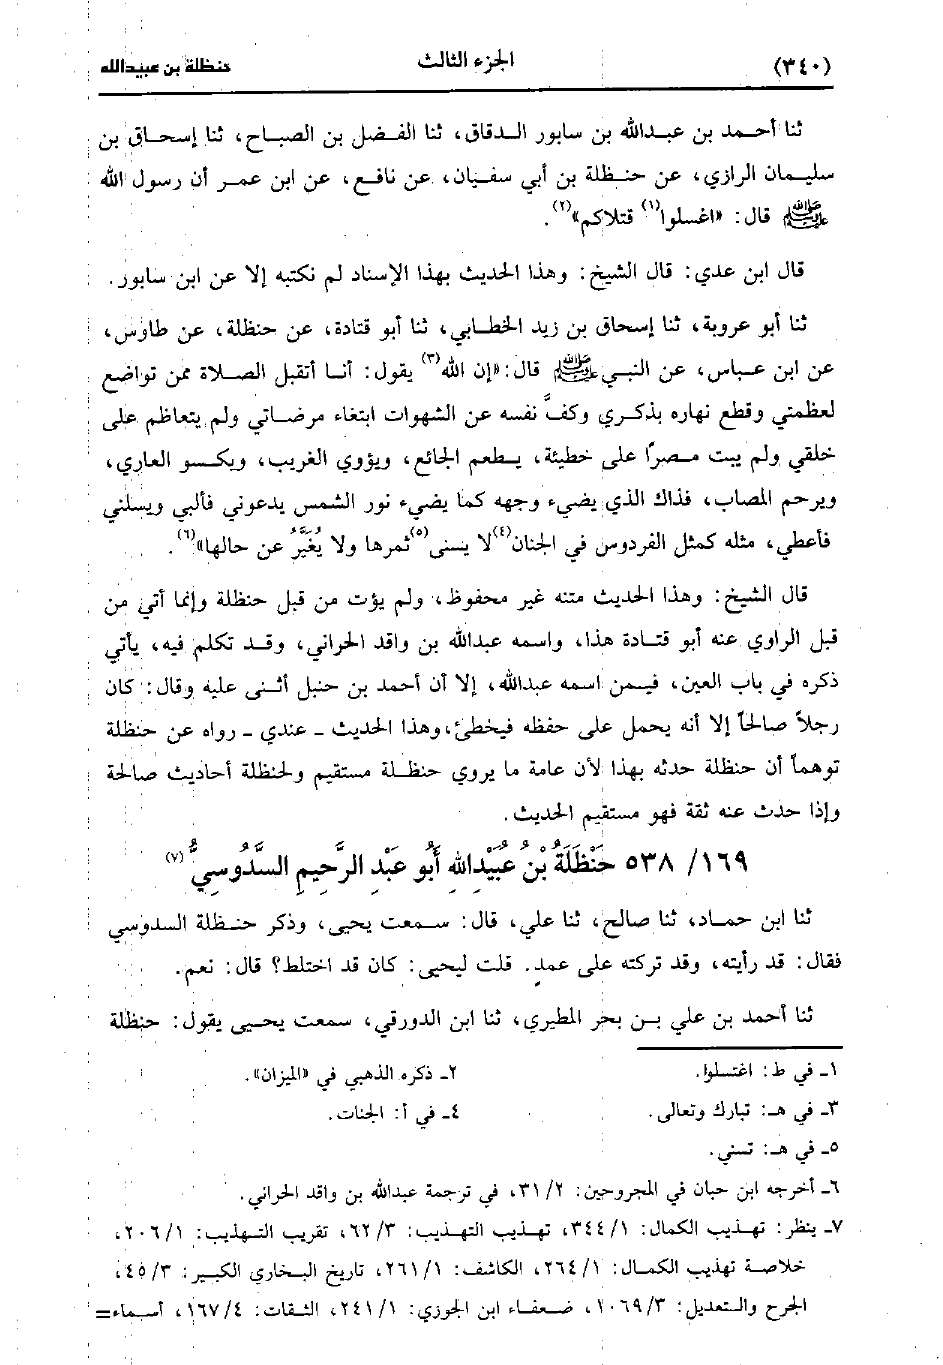 (٣٤٠) الجزء الثالث حنظلة بن عبيدالله
ثنا أحمد بن عبدالله بن سابور الدقاق، ثنا الفضل بن الصباح، ثنا إسحاق بن
سليمان الرازي، عن حنظلة بن أبي سفيان، عن نافع، عن ابن عمر أن رسول الله
ﷺ قال: «اغسلوا(١) قتلاكم»(٢).
قال ابن عدي: قال الشيخ: وهذا الحديث بهذا الإسناد لم نكتبه إلا عن ابن سابور.
ثنا أبو عروبة، ثنا إسحاق بن زيد الخطابي، ثنا أبو قتادة، عن حنظلة، عن طاوس،
عن ابن عباس، عن النبي ﷺ قال: «إن الله(٣) يقول: أنا أتقبل الصلاة ممن تواضع
لعظمتي وقطع نهاره بذكري وكفَّ نفسه عن الشهوات ابتغاء مرضاتي ولم يتعاظم على
خلقي ولم يبت مصراً على خطيئة، يطعم الجائع، ويؤوي الغريب، ويكسو العاري،
ويرحم المصاب، فذاك الذي يضيء وجهه كما يضيء نور الشمس يدعوني فألبي ويسلني
فأعطي، مثله كمثل الفردوس في الجنان(٤) لا يسنى(٥) ثمرها ولا يُغَيَّرُ عن حالها»(٦).
قال الشيخ: وهذا الحديث متنه غير محفوظ، ولم يؤت من قبل حنظلة وإنما أتي من
قبل الراوي عنه أبو قتادة هذا، واسمه عبدالله بن واقد الحراني، وقد تكلم فيه، يأتي
ذكره في باب العين، فيمن اسمه عبدالله، إلا أن أحمد بن حنبل أثنى عليه وقال: كان
رجلاً صالحاً إلا أنه يحمل على حفظه فيخطئ، وهذا الحديث ـ عندي ـ رواه عن حنظلة
توهماً أن حنظلة حدثه بهذا لأن عامة ما يروي حنظلة مستقيم ولحنظلة أحاديث صالحة
وإذا حدث عنه ثقة فهو مستقيم الحديث.
١٦٩/ ٥٣٨ حَنْظَلَةُ بْنُ عُبَيْدِاللهِ أَبُو عَبْدِ الرَّحِيمِ السَّدُوسِيُّ(٧)
ثنا ابن حماد، ثنا صالح، ثنا علي، قال: سمعت يحيى، وذكر حنظلة السدوسي
فقال: قد رأيته، وقد تركته على عمدٍ. قلت ليحيى: كان قد اختلط؟ قال: نعم.
ثنا أحمد بن علي بن بحر المطيري، ثنا ابن الدورقي، سمعت يحيى يقول: حنظلة
١ـ في ط: اغتسلوا. ٢ـ ذكره الذهبي في «الميزان».
٣ـ في هـ: تبارك وتعالى. ٤ـ في أ: الجنات.
٥ـ في هـ: تسني.
٦ـ أخرجه ابن حبان في المجروحين: ٢/ ٣١، في ترجمة عبدالله بن واقد الحراني.
٧ـ ينظر: تهذيب الكمال: ١/ ٣٤٤، تهذيب التهذيب: ٣/ ٦٢، تقريب التهذيب: ١/ ٢٠٦،
خلاصة تهذيب الكمال: ١/ ٢٦٤، الكاشف: ١/ ٢٦١، تاريخ البخاري الكبير: ٣/ ٤٥،
الجرح والتعديل: ٣/ ١٠٦٩، ضعفاء ابن الجوزي: ١/ ٢٤١، الثقات: ٤/ ١٦٧، أسماء=